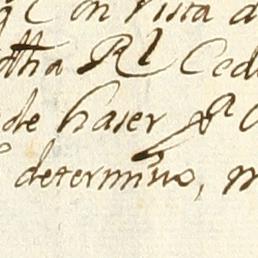 Con vista d
dha Rl Cedu
de haser
determino, m